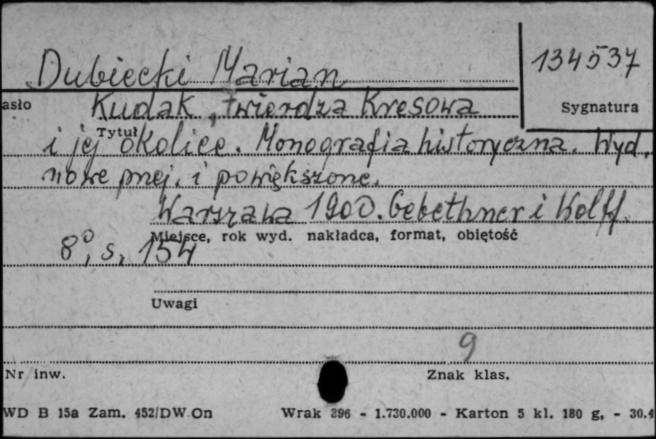 134537
Dubiecki Marian
asło Kudak, twierdza Kresowa Sygnatura
Tytuł
i jej okolice. Monografia historyczna. Wyd.
nowe przej. i powiększone.
Warszawa 1900. Gebethner i Wolff.
Miejsce, rok wyd. nakładca, format, objętość
8°, s. 154
Uwagi
9
Nr inw. Znak klas.
WD B 15a Zam. 452/DW On Wrak 396 - 1.730.000 - Karton 5 kl. 180 g, - 30.4